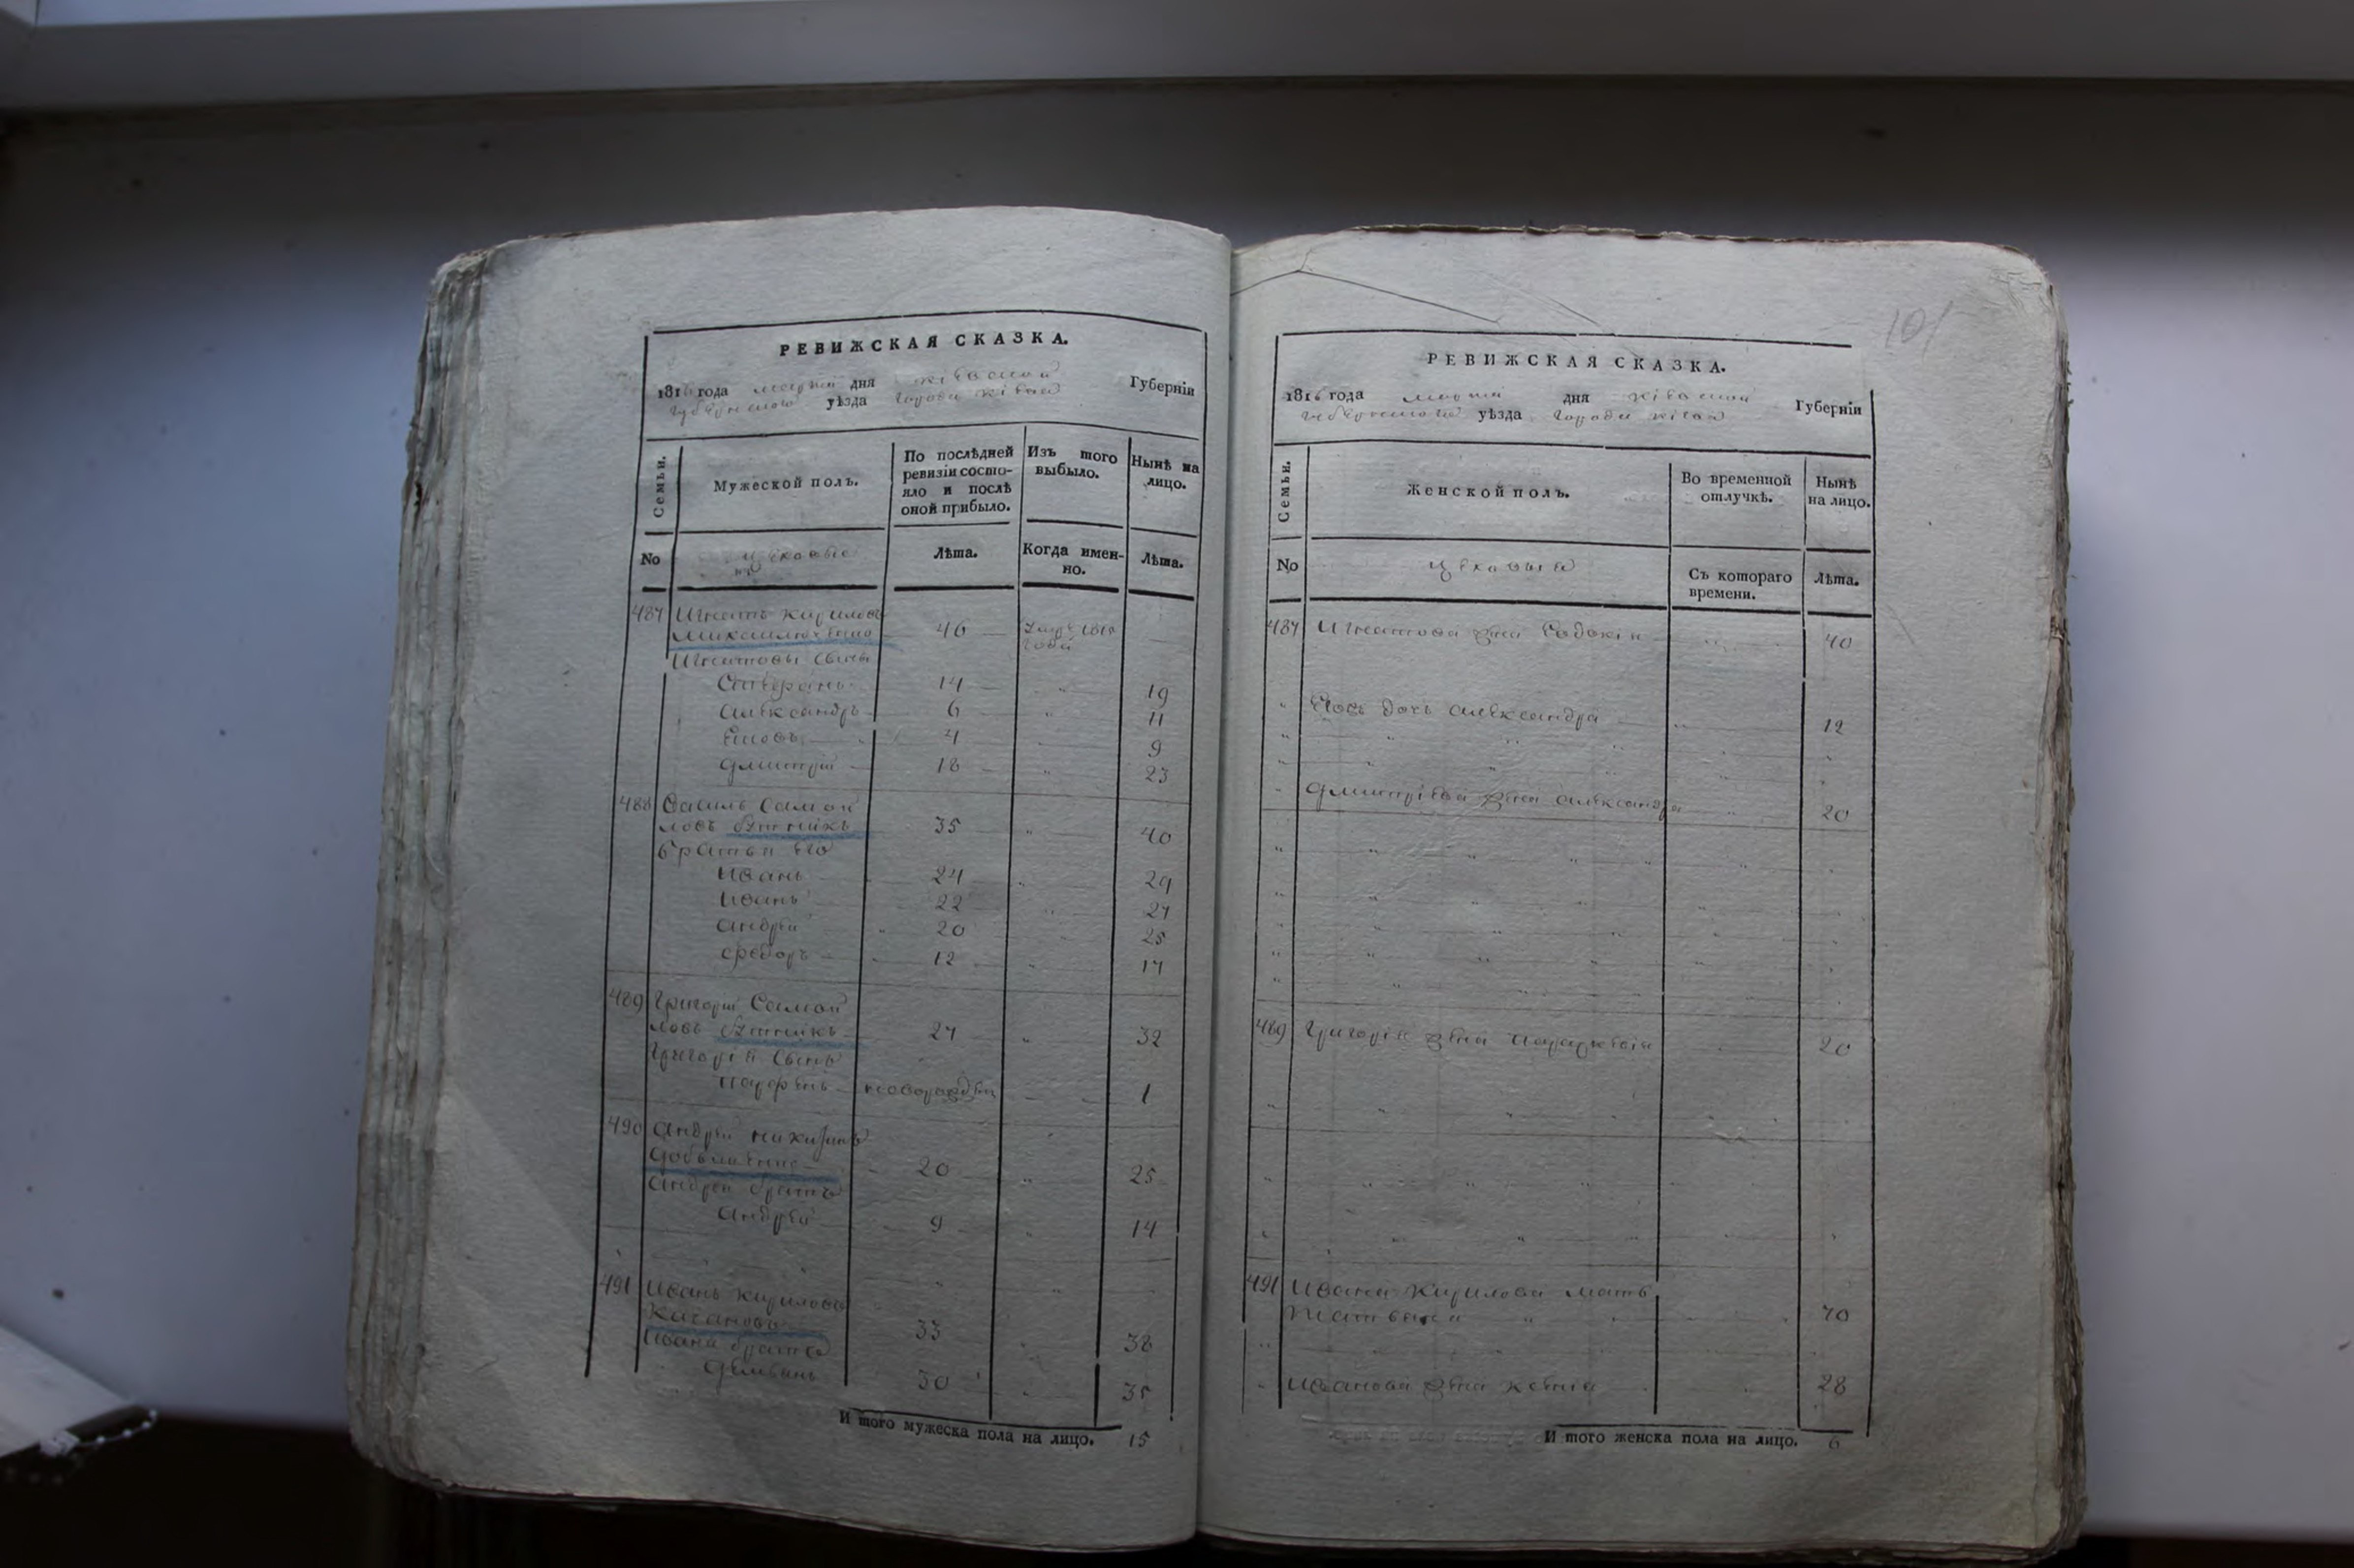 РЕВИЖСКАЯ СКАЗКА.
1816 года марта дня Кіевской Губерніи
уѣзда города Кіева
Семьи.
Мужеской полъ.
По послѣдней
ревизіи состо-
яло и послѣ
оной прибыло.
Изъ того
выбыло.
Нынѣ на
лицо.
No
цеховые
Лѣта.
Когда имен-
но.
Лѣта.
487 Игнатъ Кириловъ
46 1815
года
Игнатовы сыны
14 19
Александръ 6 11
4 9
Дмитрій 18 23
488 Василь Самой
ловъ 35 40
братья его
Иванъ 24 29
Иванъ 22 27
Андрей 20 25
Федоръ 12 17
489 Григорій Самой
ловъ 27 32
Григорія сынъ
Парфенъ новорожден 1
490 Андрей
20 25
Андрея братъ
Андрей 9 14
491 Иванъ Кириловъ
33 38
Ивана братъ
Демьянъ 30 35
И того мужеска пола на лицо. 15
101
РЕВИЖСКАЯ СКАЗКА.
1816 года марта дня Кіевской Губерніи
уѣзда города Кіева
Семьи.
Женской полъ.
Во временной
отлучкѣ.
Нынѣ
на лицо.
No
цеховыя
Съ котораго
времени.
Лѣта.
487 Игнатова жена 40
дочь Александра 12
Дмитріева жена Александра 20
489 Григорія жена Параскевія 20
491 Ивана Кирилова мать
Татьяна 70
Иванова жена 28
И того женска пола на лицо. 6